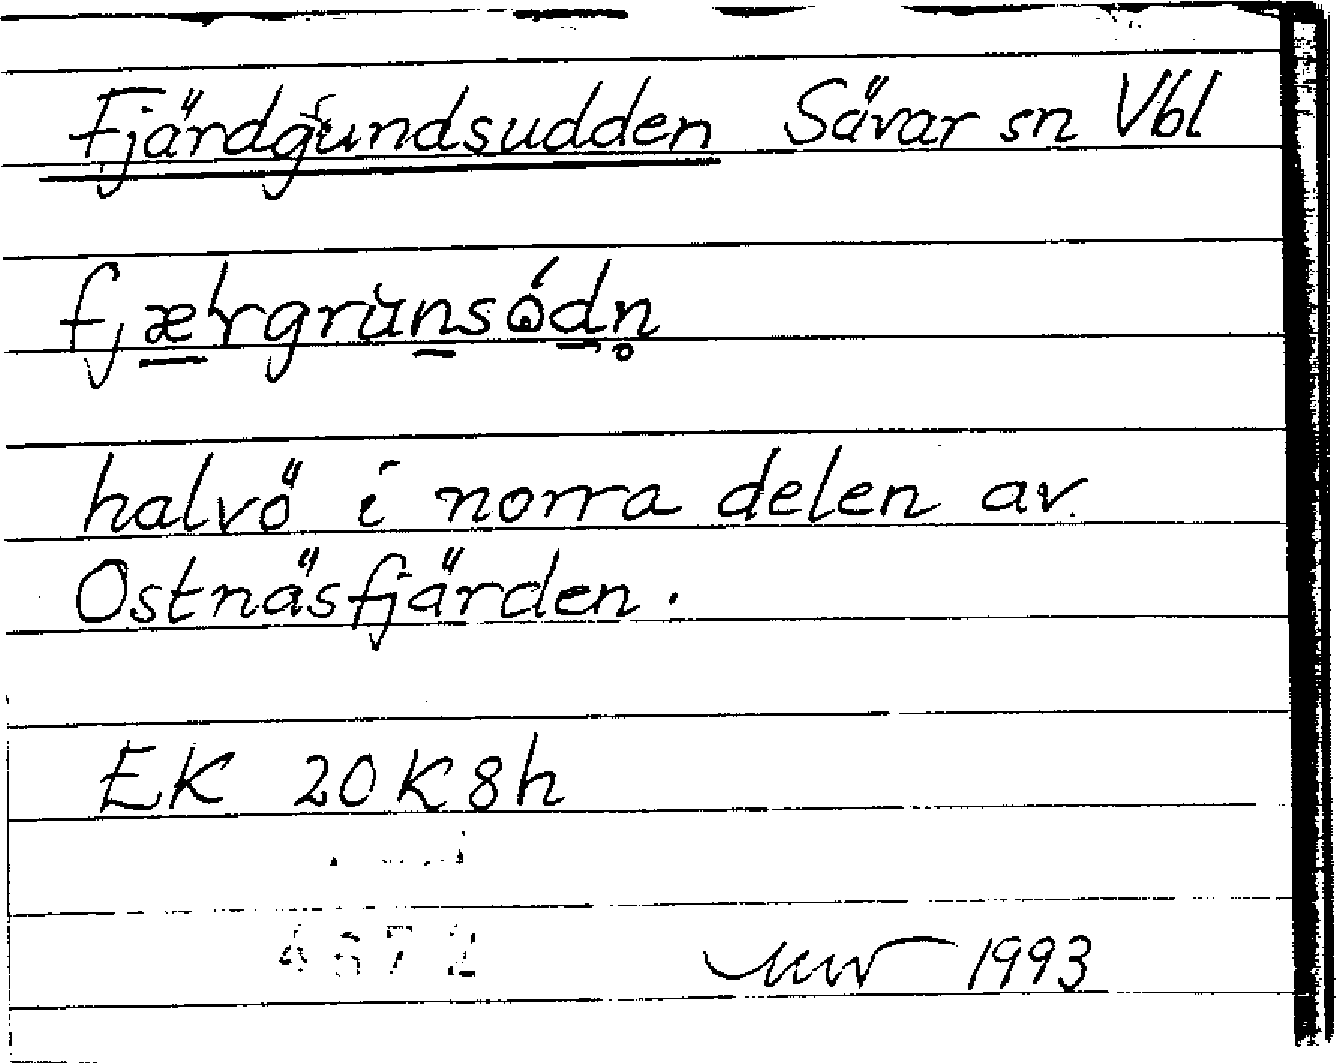 Fjärdgrundsudden Sävar sn Vbl
fjærgrùnsódn̥
halvö i norra delen av
Ostnäsfjärden.
EK 20K8h
4672
1993